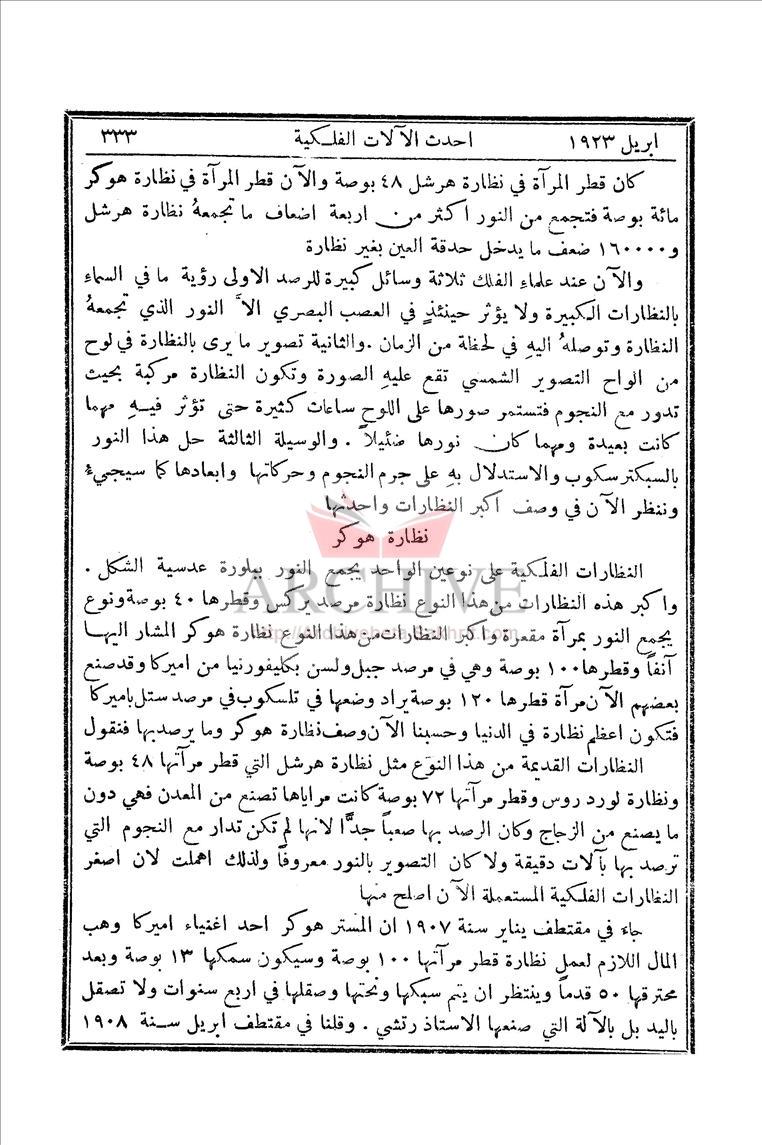 ابريل ١٩٢٣ احدث الآلات الفلكية ٣٣٣
كان قطر المرآة في نظارة هرشل ٤٨ بوصة والآن قطر المرآة في نظارة هوكر
مائة بوصة فتجمع من النور اكثر من اربعة اضعاف ما تجمعهُ نظارة هرشل
و١٦٠٠٠٠ ضعف ما يدخل حدقة العين بغير نظارة
والآن عند علماءِ الفلك ثلاثة وسائل كبيرة للرصد الاولى رؤية ما في السماءِ
بالنظارات الكبيرة ولا يؤثر حينئذٍ في العصب البصري الاَّ النور الذي تجمعهُ
النظارة وتوصلهُ اليهِ في لحظة من الزمان . والثانية تصوير ما يرى بالنظارة في لوح
من الواح التصوير الشمسي تقع عليهِ الصورة وتكون النظارة مركبة بحيث
تدور مع النجوم فتستمر صورها على اللوح ساعات كثيرة حتى تؤثر فيـهِ مهما
كانت بعيدة ومهما كان نورها ضئيلاً . والوسيلة الثالثة حل هذا النور
بالسبكترسكوب والاستدلال بهِ على جرم النجوم وحركاتها وابعادها كما سيجيءُ
وننظر الآن في وصف اكبر النظارات واحدثها
نظارة هوكر
النظارات الفلكية على نوعين الواحد يجمع النور ببلورة عدسية الشكل .
واكبر هذه النظارات من هذا النوع نظارة مرصد يركس وقطرها ٤٠ بوصة ونوع
يجمع النور بمرآة مقعرة واكبر النظارات من هذا النوع نظارة هوكر المشار اليها
آنفاً وقطرها ١٠٠ بوصة وهي في مرصد جبل ولسن بكليفورنيا من اميركا وقد صنع
بعضهم الآن مرآة قطرها ١٢٠ بوصة يراد وضعها في تلسكوب في مرصد ستل باميركا
فتكون اعظم نظارة في الدنيا وحسبنا الآن وصف نظارة هوكر وما يرصد بها فنقول
النظارات القديمة من هذا النوع مثل نظارة هرشل التي قطر مرآتها ٤٨ بوصة
ونظارة لورد روس وقطر مرآتها ٧٢ بوصة كانت مراياها تصنع من المعدن فهي دون
ما يصنع من الزجاج وكان الرصد بها صعباً جدًّا لانها لم تكن تدار مع النجوم التي
ترصد بها بآلات دقيقة ولا كان التصوير بالنور معروفاً ولذلك اهملت لان اصغر
النظارات الفلكية المستعملة الآن اصلح منها
جاءَ في مقتطف يناير سنة ١٩٠٧ ان المستر هوكر احد اغنياء اميركا وهب
المال اللازم لعمل نظارة قطر مرآتها ١٠٠ بوصة وسيكون سمكها ١٣ بوصة وبعد
محترقها ٥٠ قدماً وينتظر ان يتم سبكها ونحتها وصقلها في اربع سنوات ولا تصقل
باليد بل بالآلة التي صنعها الاستاذ رتشي . وقلنا في مقتطف ابريل سـنة ١٩٠٨
ARCHIVE